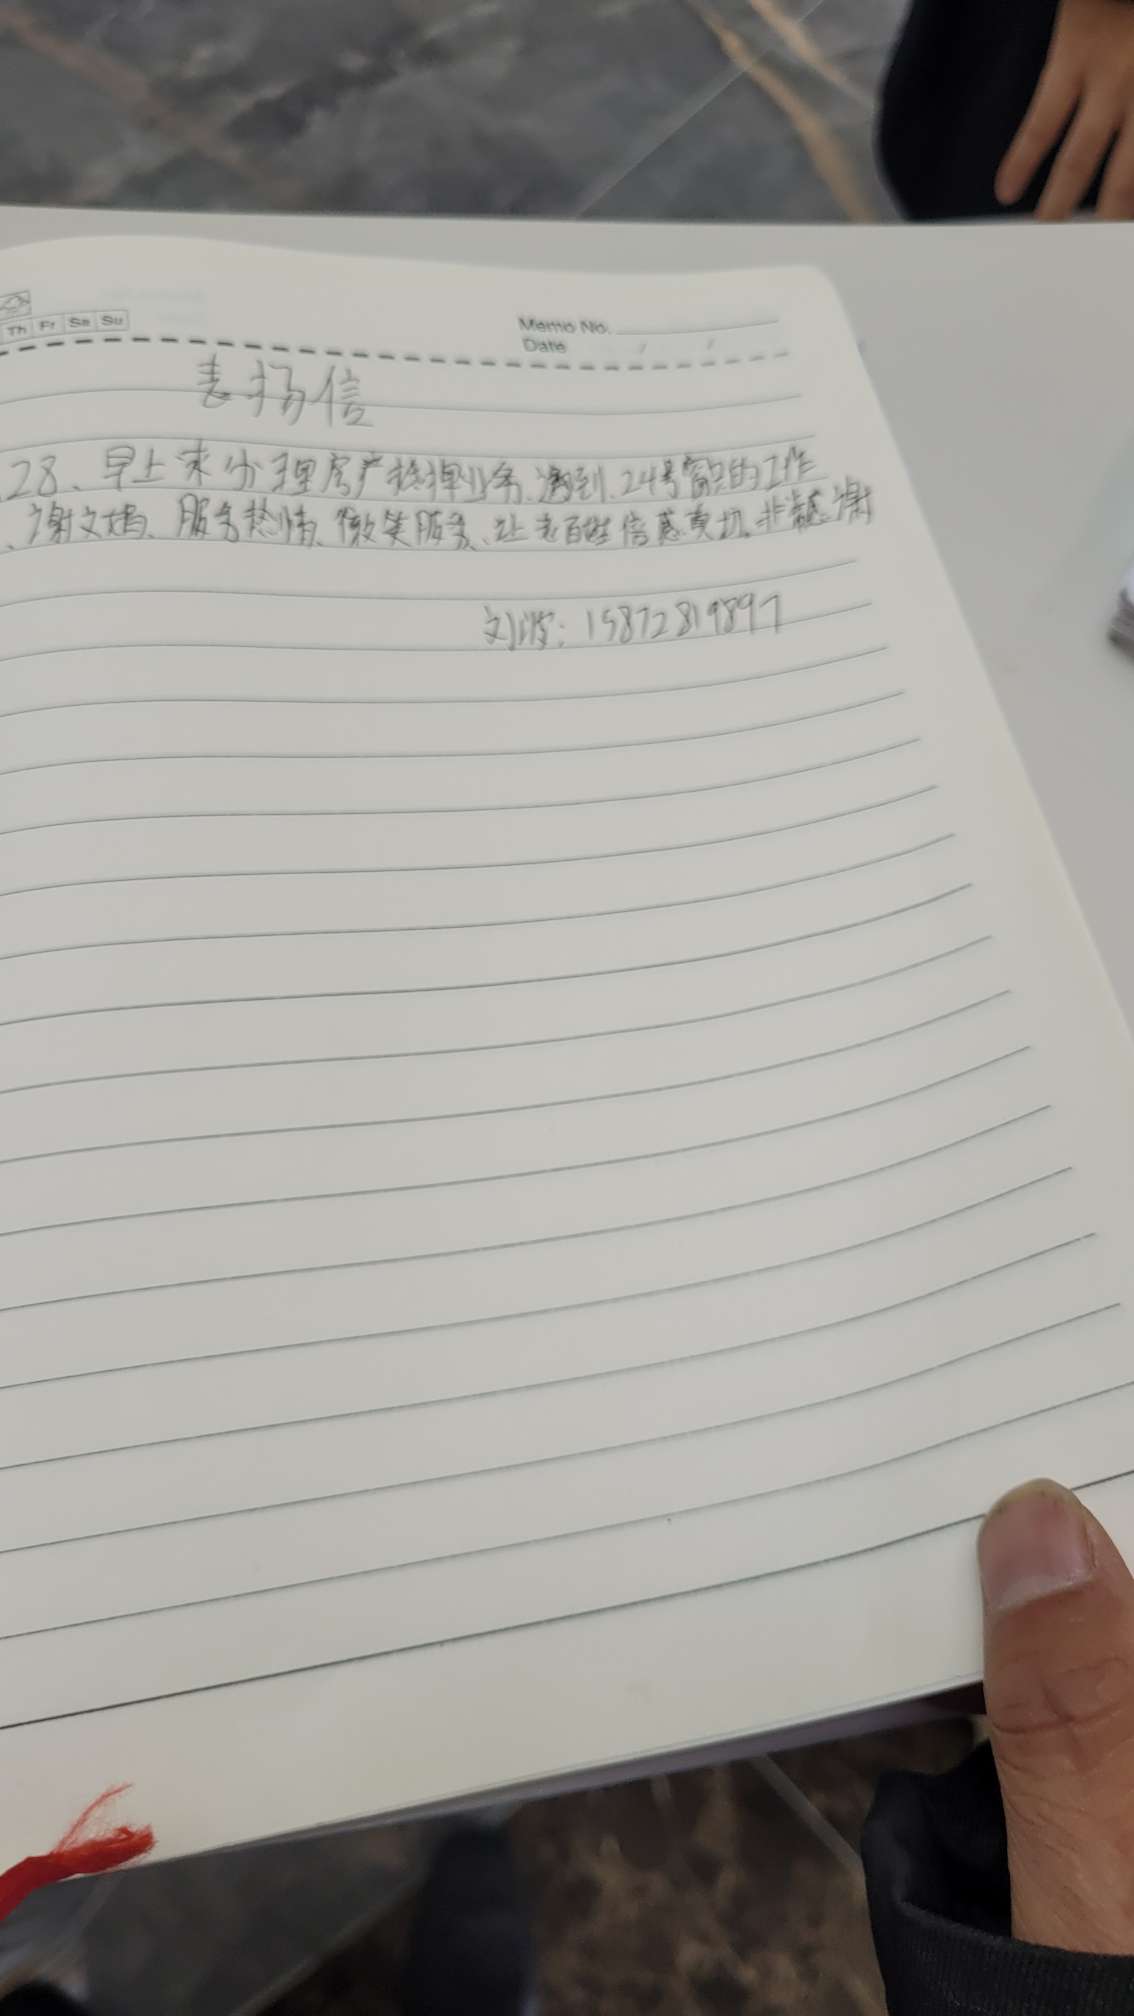 Th Fr Sa Su
Memo No.
Date / /
表扬信
28、早上来办理房产抵押业务、遇到、24号窗口的工作
、谢文娟、服务热情、微笑服务、让老百姓倍感真切、非常感谢
刘波：15872819897